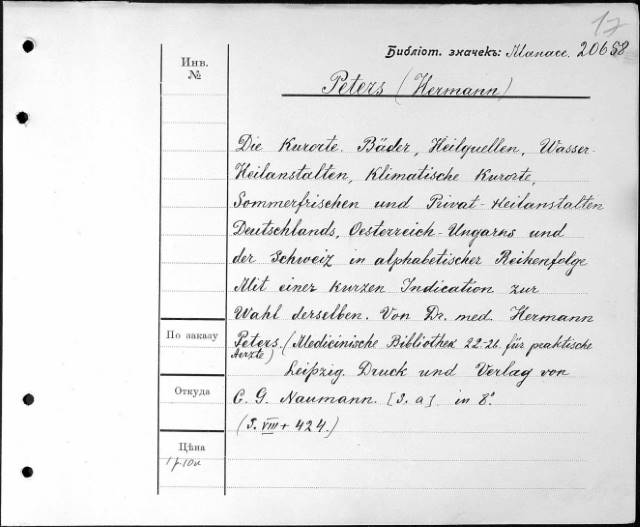 17
Библіот. значекъ: Манасс. 20658
Инв.
№
Peters (Hermann)
Die Kurorte. Bäder, Heilquellen, Wasser-
Heilanstalten, Klimatische Kurorte,
Sommerfrischen und Privat-Heilanstalten
Deutschlands, Oesterreich-Ungarns und
der Schweiz in alphabetischer Reihenfolge
Mit einer kurzen Indication zur
Wahl derselben. Von Dr. med. Hermann
По заказу
Peters. (Medicinische Bibliothek 22-26. für praktische
Aerzte)
Leipzig. Druck und Verlag von
Откуда
C. G. Naumann. [S. a]. in 8°.
(S. VIII + 424.)
Цѣна